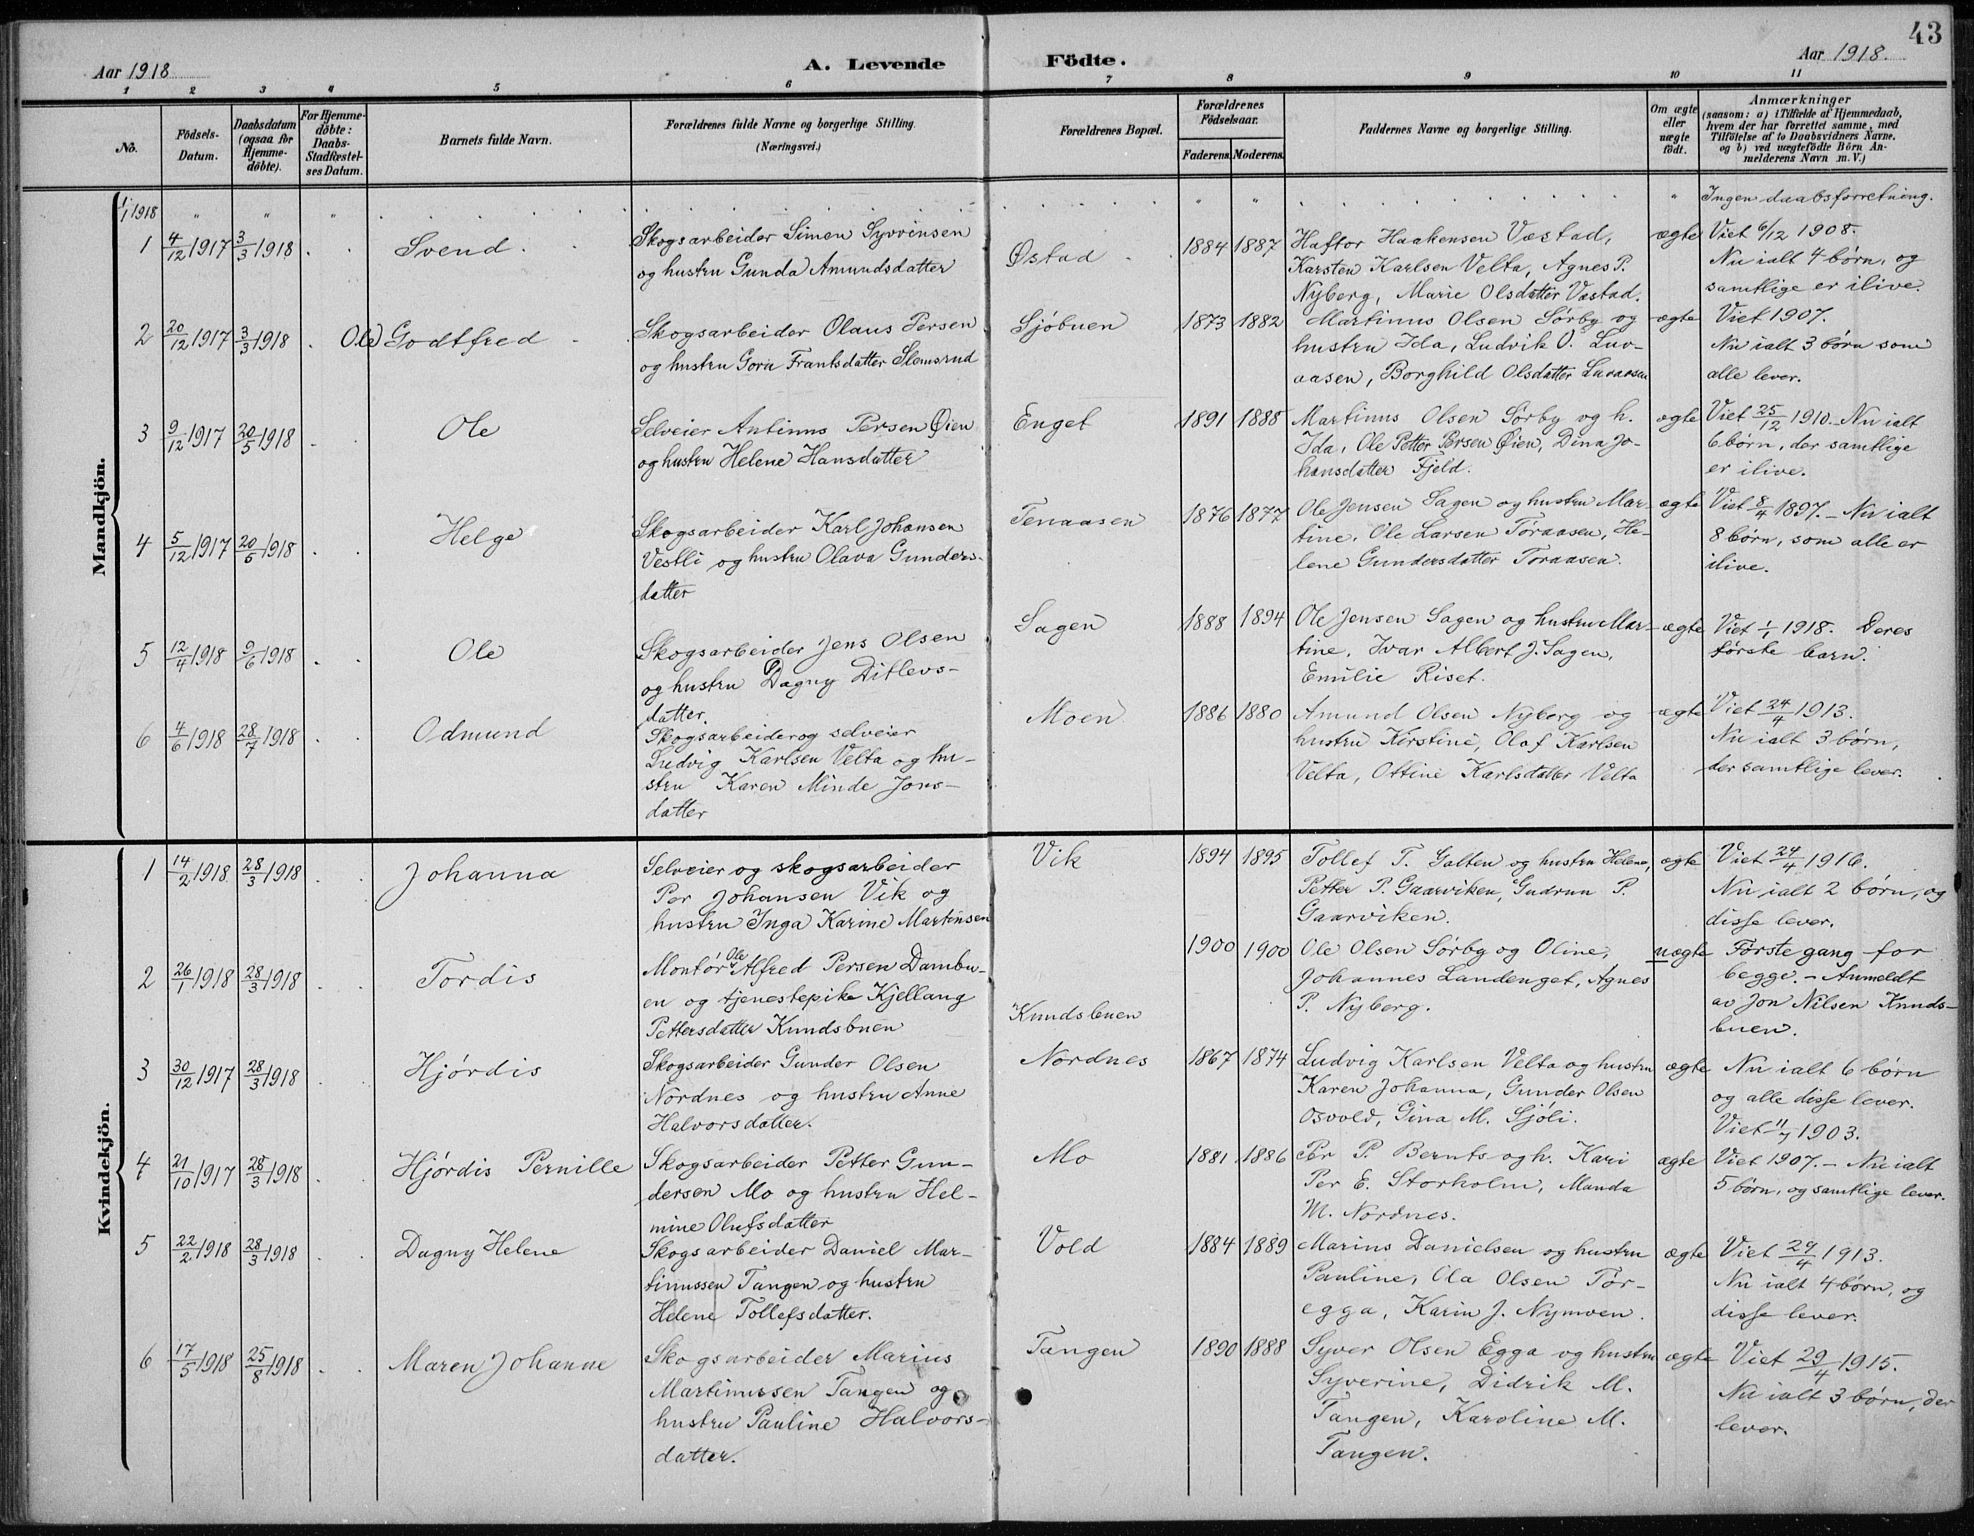 43
Aar 1918
A. Levende Födte.
Aar 1918.
1 2 3 4 5 6 7 8 9 10 11
No.
Födsels-
Datum.
Daabsdatum
(ogsaa for
Hjemme-
döbte).
For Hjemme-
döbte:
Daabs-
Stadfæstel-
ses Datum.
Barnets fulde Navn.
Forældrenes fulde Navne og borgerlige Stilling.
(Næringsvei.)
Forældrenes Bopæl.
Forældrenes
Födselsaar.
Faderens. Moderens.
Faddernes Navne og borgerlige Stilling.
Om ægte
eller
uægte
födt.
Anmærkninger
(saasom: a) i Tilfælde af Hjemmedaab,
hvem der har forrettet samme, med
Tilföielse af to Daabsvidners Navne,
og b) ved uægtefödte Börn An-
melderens Navn m. V.)
Mandkjön.
1/1 1918 " " " " " " Ingen daabsforretning.
1 4/12 1917 3/3 1918 . . Svend.
Skogsarbeider Simen Syvrinsen
og hustru Gunda Amundsdatter
Østad
1884 1887
Haftor Haakensen Væstad,
Karsten Karlsen Velta, Agnes P.
Nyberg, Marie Olsdatter Væstad.
ægte
Viet 6/12 1908.
Nu ialt 4 børn, og
samtlige er ilive.
2 20/12 1917 3/3 1918 . Ole Godtfred
Skogsarbeider Olaus Persen
og hustru Goru Frantsdatter Slemsrud
Sjøbuen
1873 1882
Martinus Olsen Sørby og
hustru Ida, Ludvik O. Luv-
aasen, Borghild Olsdatter Luvaasen
ægte
Viet 1907.
Nu ialt 3 børn som
alle lever.
3 9/12 1917 20/5 1918 . . Ole
Selveier Antinus Persen Øien
og hustru Helene Hansdatter
Enget
1891 1888
Martinus Olsen Sørby og h.
Ida, Ole Petter Persen Øien, Dina Jo-
hansdatter Fjeld.
ægte
Viet 25/12 1910. - Nu ialt
6 børn, der samtlige
er ilive.
4 5/12 1917 20/5 1918 . . Helge
Skogsarbeider Karl Johansen
Vestli og hustru Olava Gunders-
datter
Tenaasen
1876 1877
Ole Jensen Sagen og hustru Mar-
tine, Ole Larsen Tøraasen, He-
lene Gundersdatter Tøraasen.
ægte
Viet 8/4 1897. - Nu ialt
8 børn, som alle er
ilive.
5 12/4 1918 9/6 1918 . . Ole
Skogsarbeider Jens Olsen
og hustru Dagny Ditlevs-
datter.
Sagen
1888 1894
Ole Jensen Sagen og hustru Mar-
tine, Ivar Albert J. Sagen,
Emilie Riset.
ægte
Viet 1/1 1918. Deres
første barn.
6 4/6 1918 28/7 1918 . . Odmund
Skogsarbeider og selveier
Ludvig Karlsen Velta og hu-
stru Karen Minde Jons-
datter
Moen
1886 1880
Amund Olsen Nyborg og
hustru Kirstine, Olaf Karlsen
Velta, Ottine Karlsdatter Velta
ægte
Viet 24/4 1913.
Nu ialt 3 børn,
der samtlige lever.
Kvindekjön.
1 14/2 1918 28/3 1918 . . Johanna
Selveier og skogsarbeider
Per Johansen Vik og
hustru Inga Karine Martinsen
Vik
1894 1895
Tollef T. Galten og hustru Helene,
Petter P. Gaarviken, Gudrun P.
Gaarviken.
ægte
Viet 24/4 1916.
Nu ialt 2 børn, og
disse lever.
2 26/1 1918 28/3 1918 Tordis
Montør Ole Alfred Persen Dambu-
en og tjenestepike Kjellaug
Pettersdatter Knudsbuen
Knudsbuen
1900 1900
Ole Olsen Sørby og Oline,
Johannes Landenget, Agnes
P. Nyberg.
uægte
Første gang for
begge. - Anmeldt
av Jon Nilsen Knuds-
buen.
3 30/12 1917 28/3 1918 . Hjørdis
Skogsarbeider Gunder Olsen
Nordnes og hustru Anne
Halvorsdatter.
Nordnes
1867 1874
Ludvig Karlsen Velta og hustru
Karen Johanna, Gunder Olsen
Osvold, Gina M. Sjøli.
ægte
Nu ialt 6 børn
og alle disse lever.
Viet 11/7 1903.
4 21/10 1917 28/3 1918 . . Hjørdis Pernille
Skogsarbeider Petter Gun-
dersen Mo og hustru Hel-
mine Olufsdatter
Mo
1881 1886
Per P. Bernts og h. Kari
Per E. Storholm, Manda
M. Nordnes.
ægte
Viet 1907. - Nu ialt
5 børn, og samtlige lever.
5 22/2 1918 28/3 1918 . . Dagny Helene
Skogsarbeider Daniel Mar-
tinussen Tangen og hustru
Helene Tollefsdatter.
Vold
1884 1889
Marius Danielsen og hustru
Pauline, Ola Olsen Tør-
egga, Karin J. Nymoen.
ægte
Viet 29/4 1913.
Nu ialt 4 børn, og
disse lever.
6 17/5 1918 25/8 1918 . . Maren Johanne
Skogsarbeider Marius
Martinussen Tangen og
hustru Pauline Halvors-
datter.
Tangen
1890 1888
Syver Olsen Egga og hustru
Syverine, Didrik M.
Tangen, Karoline M.
Tangen.
ægte
Viet 29/4 1915.
Nu ialt 3 børn, der
lever.